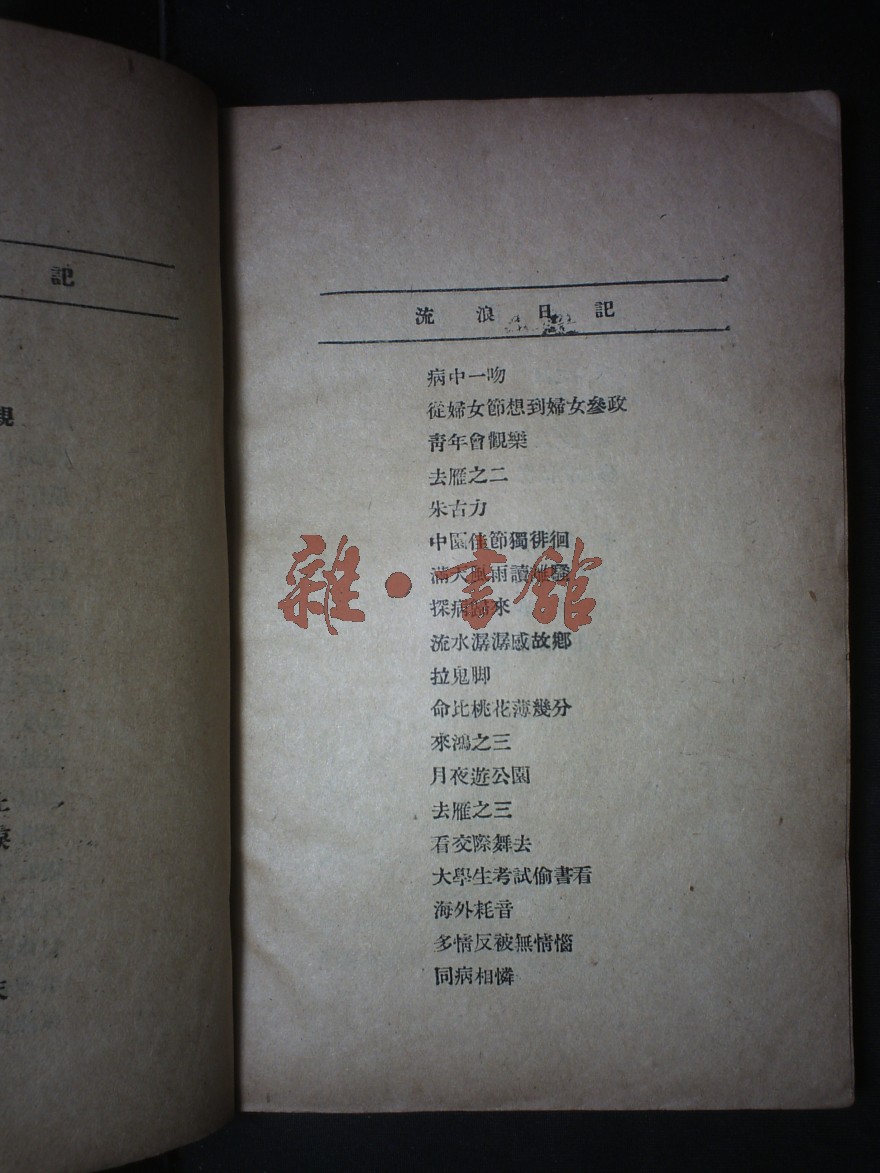 記
流浪日記
病中一吻
從婦女節想到婦女參政
靑年會觀樂
去雁之二
朱古力
中園佳節獨徘徊
滿天風雨讀離騷
探病歸來
流水潺潺感故鄉
拉鬼脚
命比桃花薄幾分
來鴻之三
月夜遊公園
去雁之三
看交際舞去
大學生考試偷書看
海外耗音
多情反被無情惱
同病相憐
雜·書館